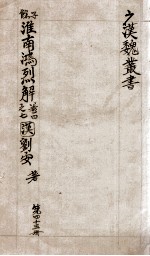 漢魏叢書
子餘
淮南鴻烈解
卷四之七
漢劉安 著
第四十三册